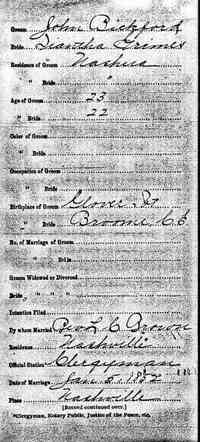 Groom John Bickford
Bride Diantha Grimes
Residence of Groom Nashua
" Bride "
Age of Groom 23
" Bride 22
Color of Groom
" Bride
Occupation of Groom
" Bride
Birthplace of Groom Glover Vt
" Bride Broome C E
No. of Marriage of Groom
" " Bride
Groom Widowed or Divorced
Bride " " "
Intention Filed
By whom Married Rev L C Brown
Residence Nashville
Official Station Clergyman
Date of Marriage Jan 5, 1852
Place Nashville
[Record continued over.]
*Clergyman, Notary Public, Justice of the Peace, etc.